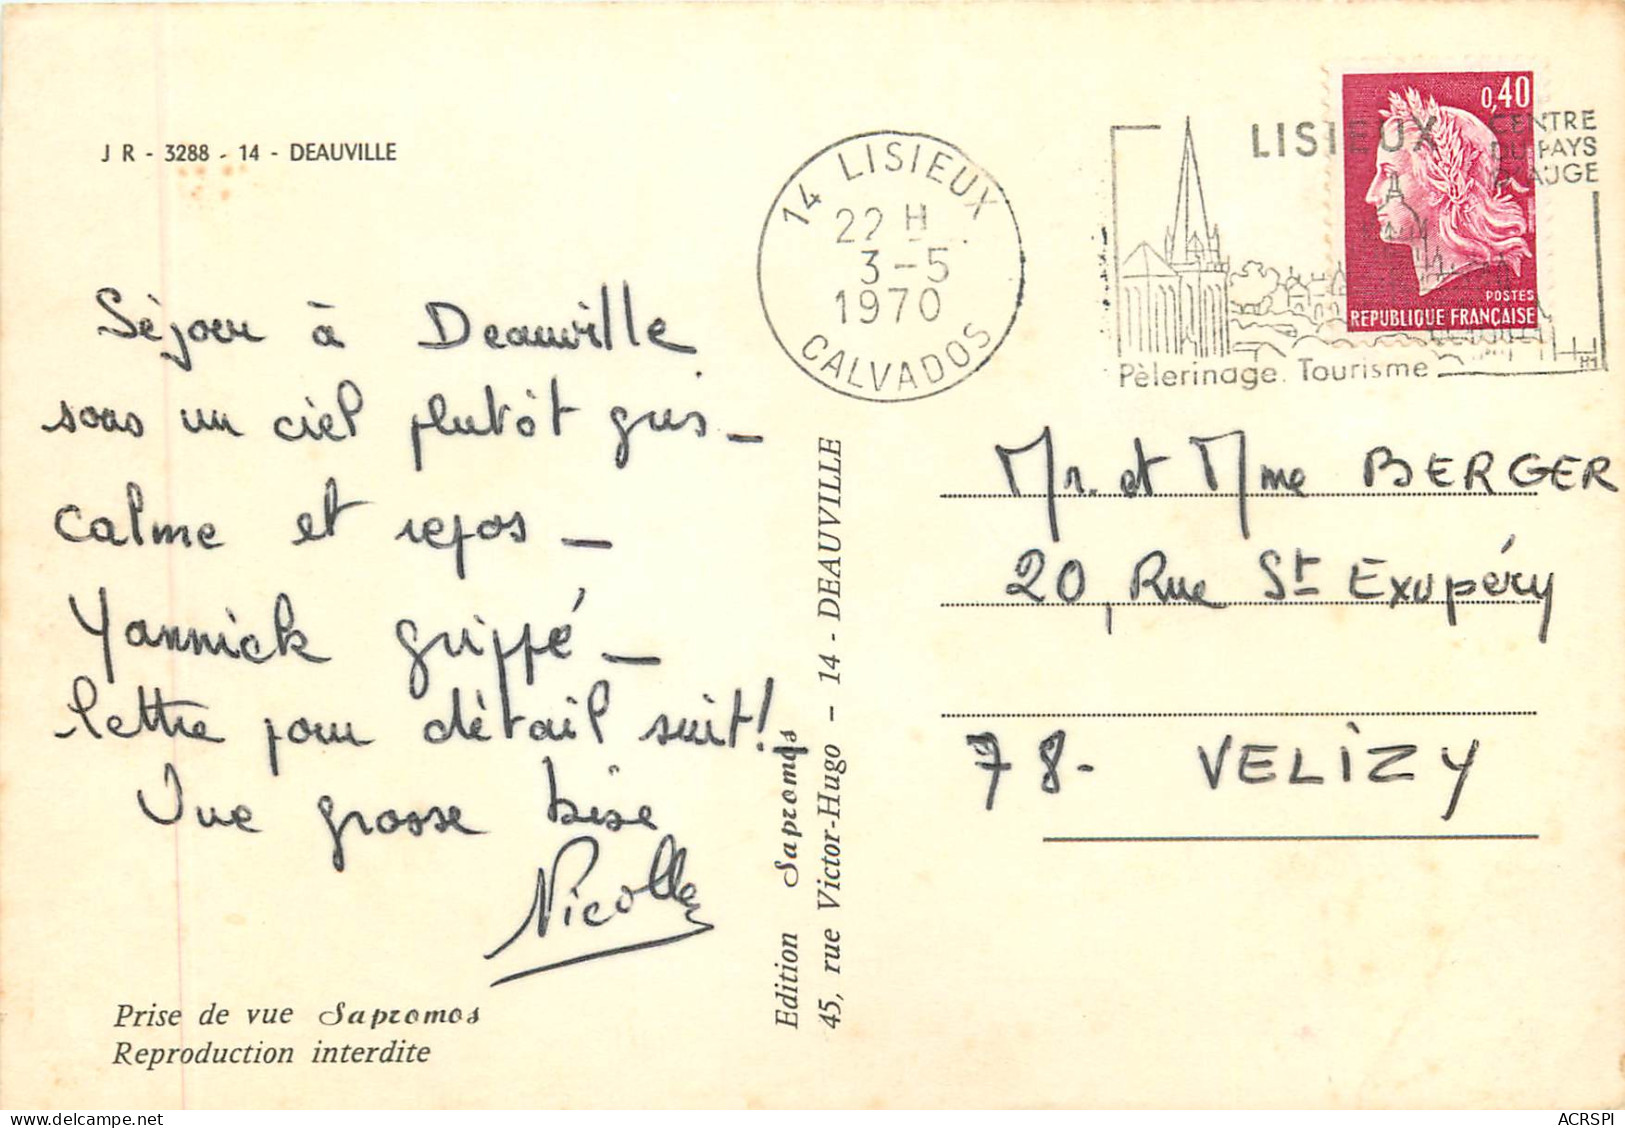 J R - 3288 - 14 - DEAUVILLE
Séjour à Deauville
sous un ciel plutôt gris _
calme et repos _
Yannick grippé _
lettre pour détail suit! _
Une grosse bise
Nicolle
Prise de vue Sapromos
Reproduction interdite
Edition Sapromos
45, rue Victor-Hugo - 14 - DEAUVILLE
14 LISIEUX
22 H
3 - 5
1970
CALVADOS
LISIEUX
CENTRE
DU PAYS
D'AUGE
Pèlerinage. Tourisme
HM
0,40
POSTES
REPUBLIQUE FRANÇAISE
Mr. et Mme BERGER
20, Rue St Exupéry
78 - VELIZY
ACRSPI